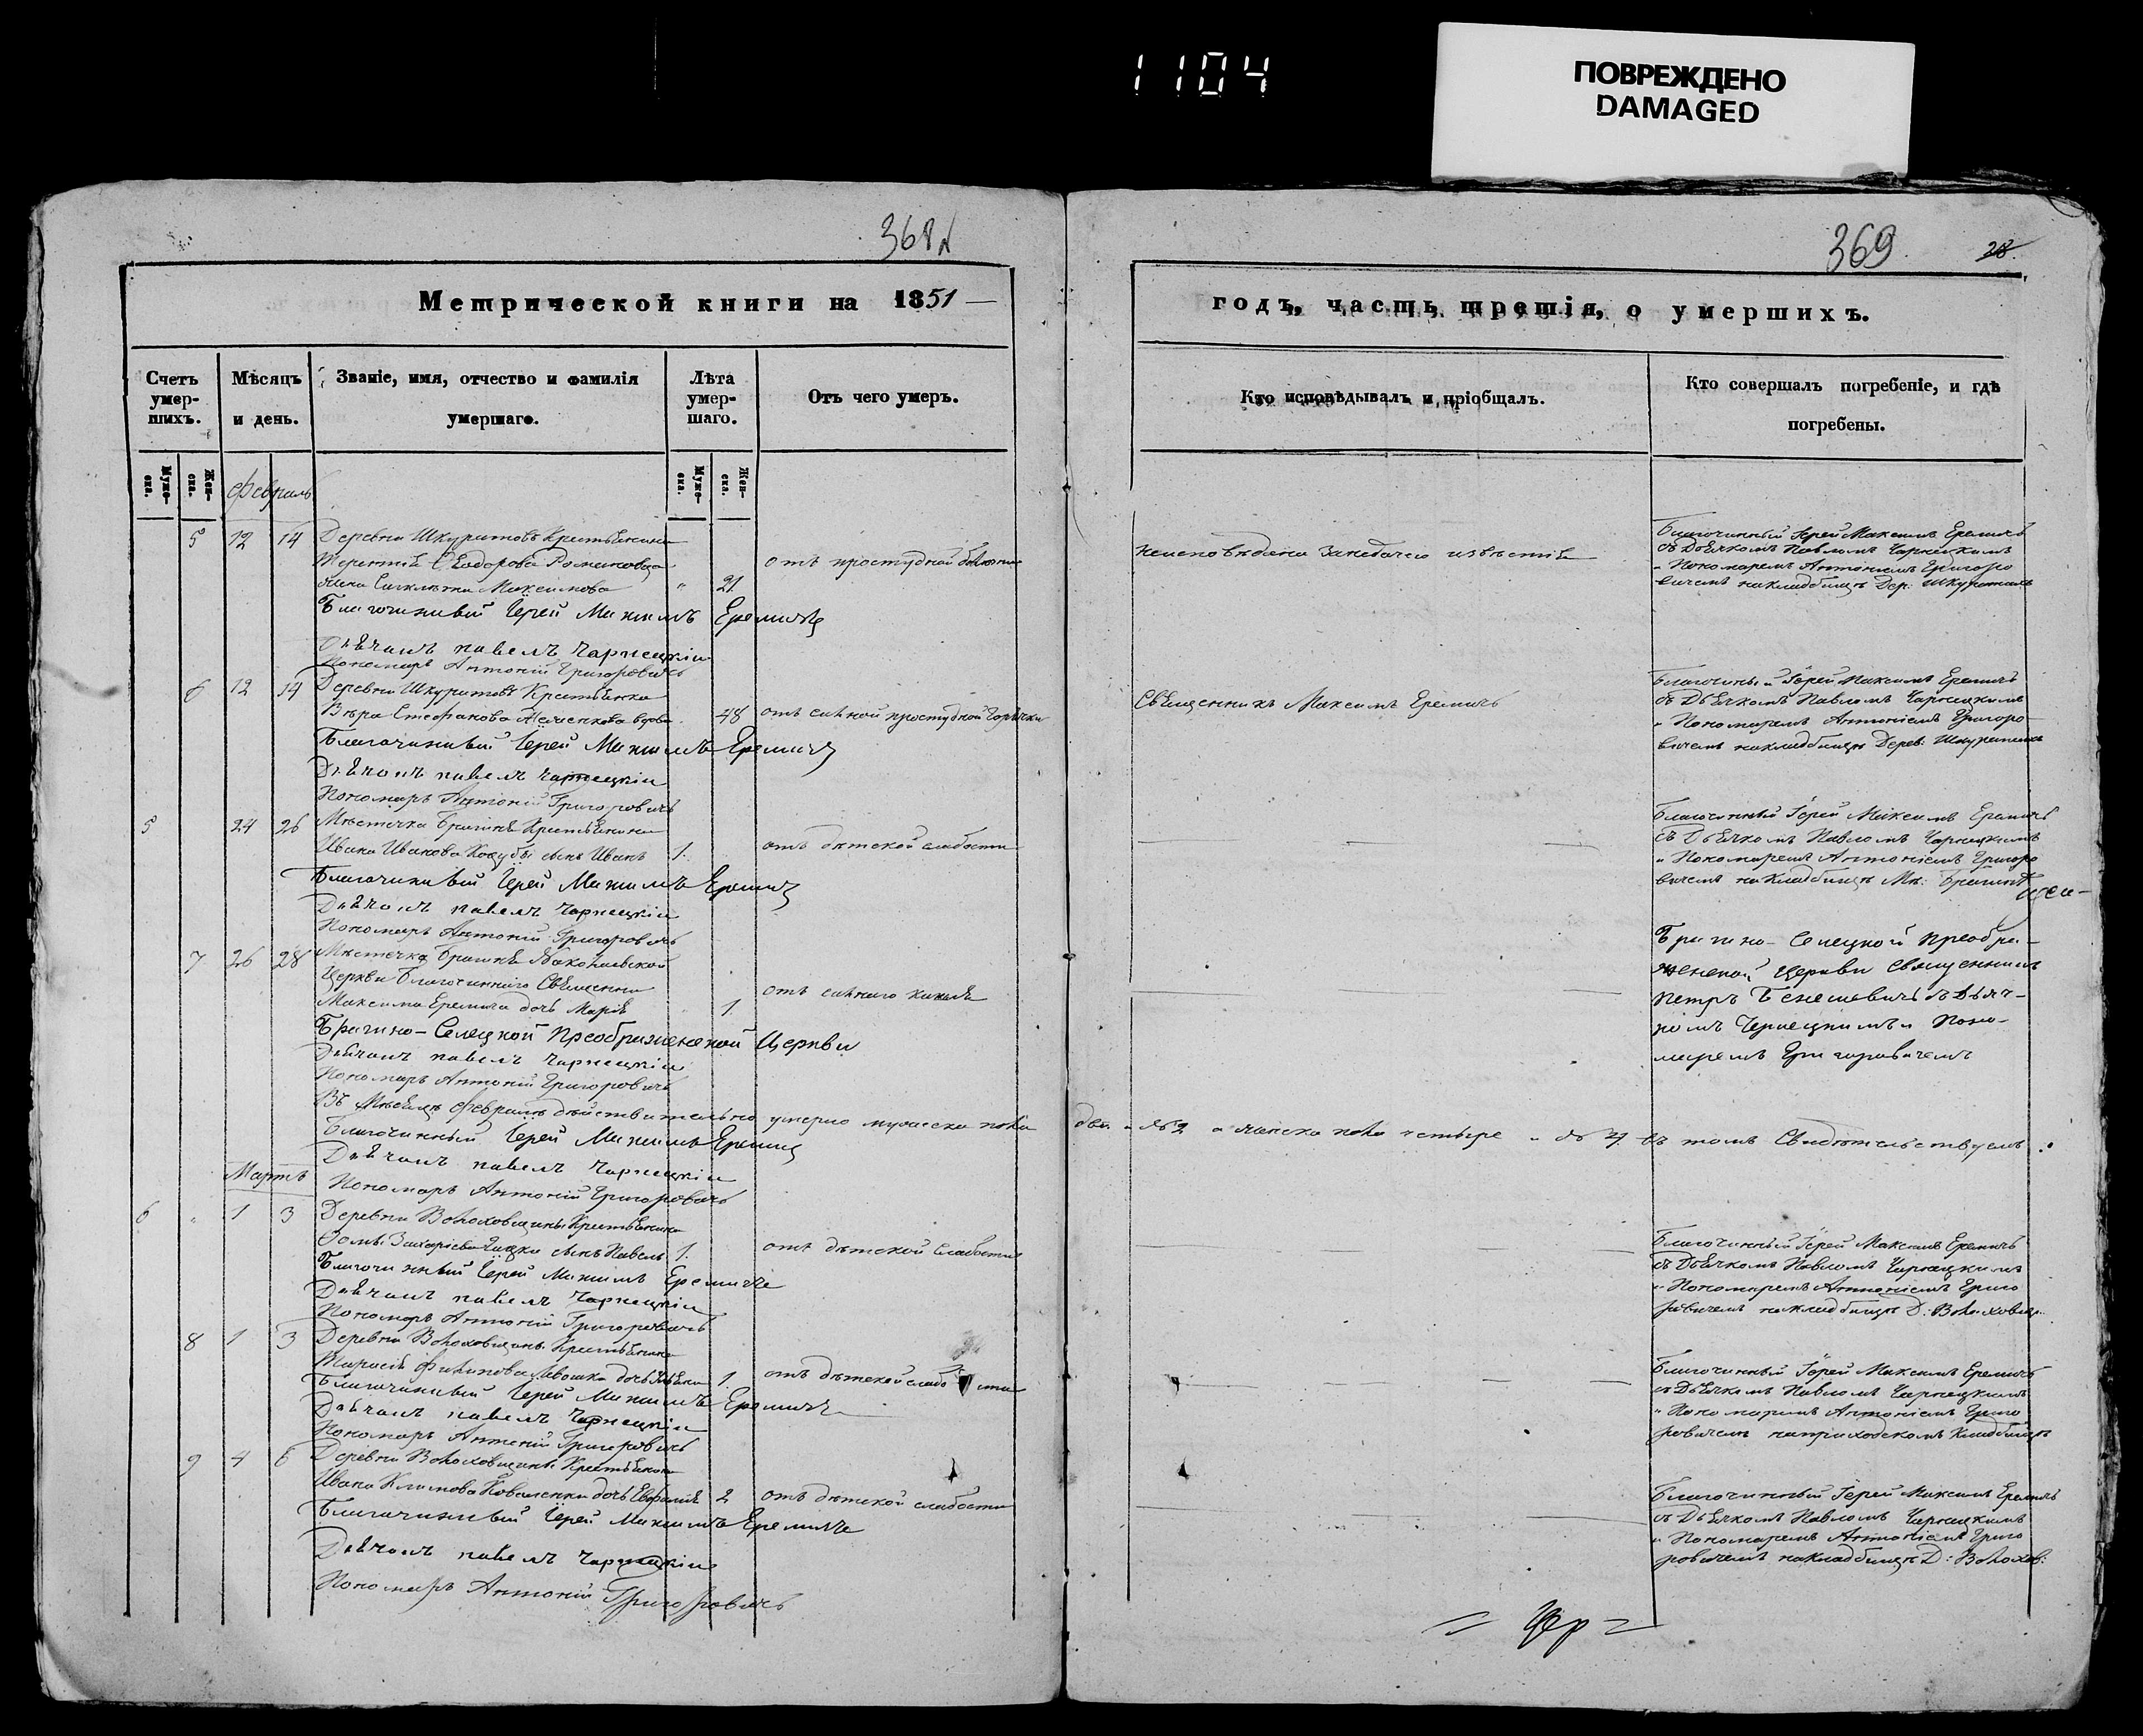 1104
ПОВРЕЖДЕНО
DAMAGED
368
Метрической книги на 1851
Счетъ умер-шихъ.
Мѣсяцъ и день.
Званіе, имя, отчество и фамилія умершаго.
Лѣта умер-шаго.
Отъ чего умеръ.
Муже-ска.
Жен-ска.
Муже-ска.
Жен-ска.
Февраль
5 12 14 Деревни Шкуратовъ Крестьянина
Терентія Ѳеодорова Романовца
жена Максимова 21 отъ простудной болѣзни
Благочинный Іерей Максимъ Еремичъ
Дьячокъ Павелъ Чарнецкій
Пономарь Антоній Григоровичъ
6 12 14 Деревни Шкуратовъ Крестьянка
Вѣра Стефанова вдова 48 отъ сильной простудной горячки
Благочинный Іерей Максимъ Еремичъ
Дьячокъ Павелъ Чарнецкій
Пономарь Антоній Григоровичъ
5 24 26 Мѣстечка Брагиня Крестьянина
Ивана Иванова сынъ Иванъ 1. отъ дѣтской слабости
Благочинный Іерей Максимъ Еремичъ
Дьячокъ Павелъ Чарнецкій
Пономарь Антоній Григоровичъ
7 26 28 Мѣстечка Брагиня Николаевской
Церкви Благочиннаго Священника
Максима Еремича дочь Марія 1. отъ сильнаго кашля
Брагино-Селецкой Преображенской Церкви
Дьячокъ Павелъ Чарнецкій
Пономарь Антоній Григоровичъ
Въ Мѣсяцѣ Февралѣ дѣйствительно умерло мужеска пола
Благочинный Іерей Максимъ Еремичъ
Дьячокъ Павелъ Чарнецкій
Мартъ
Пономарь Антоній Григоровичъ
6 " 1 3 Деревни Волоховщины Крестьянина
Ѳомы Захаріева сынъ Павелъ 1. отъ дѣтской слабости
Благочинный Іерей Максимъ Еремичъ
Дьячокъ Павелъ Чарнецкій
Пономарь Антоній Григоровичъ
8 1 3 Деревни Волоховщины Крестьянина
Тарасія Филипова дочь 1. отъ дѣтской слабости
Благочинный Іерей Максимъ Еремичъ
Дьячокъ Павелъ Чарнецкій
Пономарь Антоній Григоровичъ
9 4 6 Деревни Волоховщины Крестьянина
Ивана Климова Коваленки дочь Евфимія 2 отъ дѣтской слабости
Благочинный Іерей Максимъ Еремичъ
Дьячокъ Павелъ Чарнецкій
Пономарь Антоній Григоровичъ
369.
годъ, часть третія, о умершихъ.
Кто исповѣдывалъ и пріобщалъ.
Кто совершалъ погребеніе, и гдѣ погребены.
неисповѣдана
Благочинный Іерей Максимъ Еремичъ
съ Дьячкомъ Павломъ Чарнецкимъ
и Пономаремъ Антоніемъ Григоро
вичемъ на кладбищѣ Дер. Шкуратовъ
Священникъ Максимъ Еремичъ
Благочинный Іерей Максимъ Еремичъ
съ Дьячкомъ Павломъ Чарнецкимъ
и Пономаремъ Антоніемъ Григоро
вичемъ на кладбищѣ Дерев: Шкуратовъ
Благочинный Іерей Максимъ Еремичъ
съ Дьячкомъ Павломъ Чарнецкимъ
и Пономаремъ Антоніемъ Григоро
вичемъ на кладбищѣ Мѣ: Брагиня
Брагино-Селецкой Преобра-
женской Церкви Священникъ
Петръ Бенешевичъ съ Дьяч-
комъ Чернецкимъ и Поно-
маремъ Григоровичемъ
два № 2 а женска пола четыре № 4 въ томъ Свидѣтельствуемъ
Благочинный Іерей Максимъ Еремичъ
съ Дьячкомъ Павломъ Чарнецкимъ
и Пономаремъ Антоніемъ Григо
ровичемъ на кладбищѣ Д: Волоховщ.
Благочинный Іерей Максимъ Еремичъ
съ Дьячкомъ Павломъ Чарнецкимъ
и Пономаремъ Антоніемъ Григо
ровичемъ на приходскомъ кладбищѣ
Благочинный Іерей Максимъ Еремичъ
съ Дьячкомъ Павломъ Чарнецкимъ
и Пономаремъ Антоніемъ Григо
ровичемъ на кладбищѣ Д: Волохов: